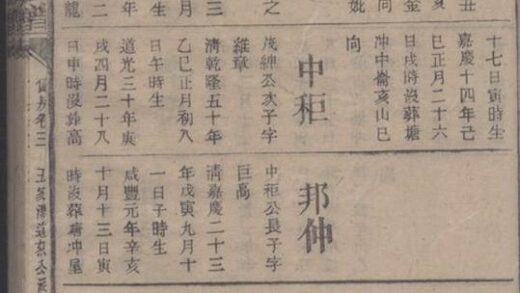 丑
亥
金
妣
之
三
月
年
生
龍
十七日寅時生
嘉慶十四年己
巳正月二十六
日戌時歿葬塘
冲中崙亥山巳
向
中秬
茂紳公次子字
維章
清乾隆五十年
乙巳正月初八
日午時生
道光三十年庚
戌四月二十八
日申時歿葬高
邦仲
中秬公長子字
巨高
清嘉慶二十三
年戊寅九月十
一日子時生
咸豐元年辛亥
十月十三日寅
時歿葬塘冲屋